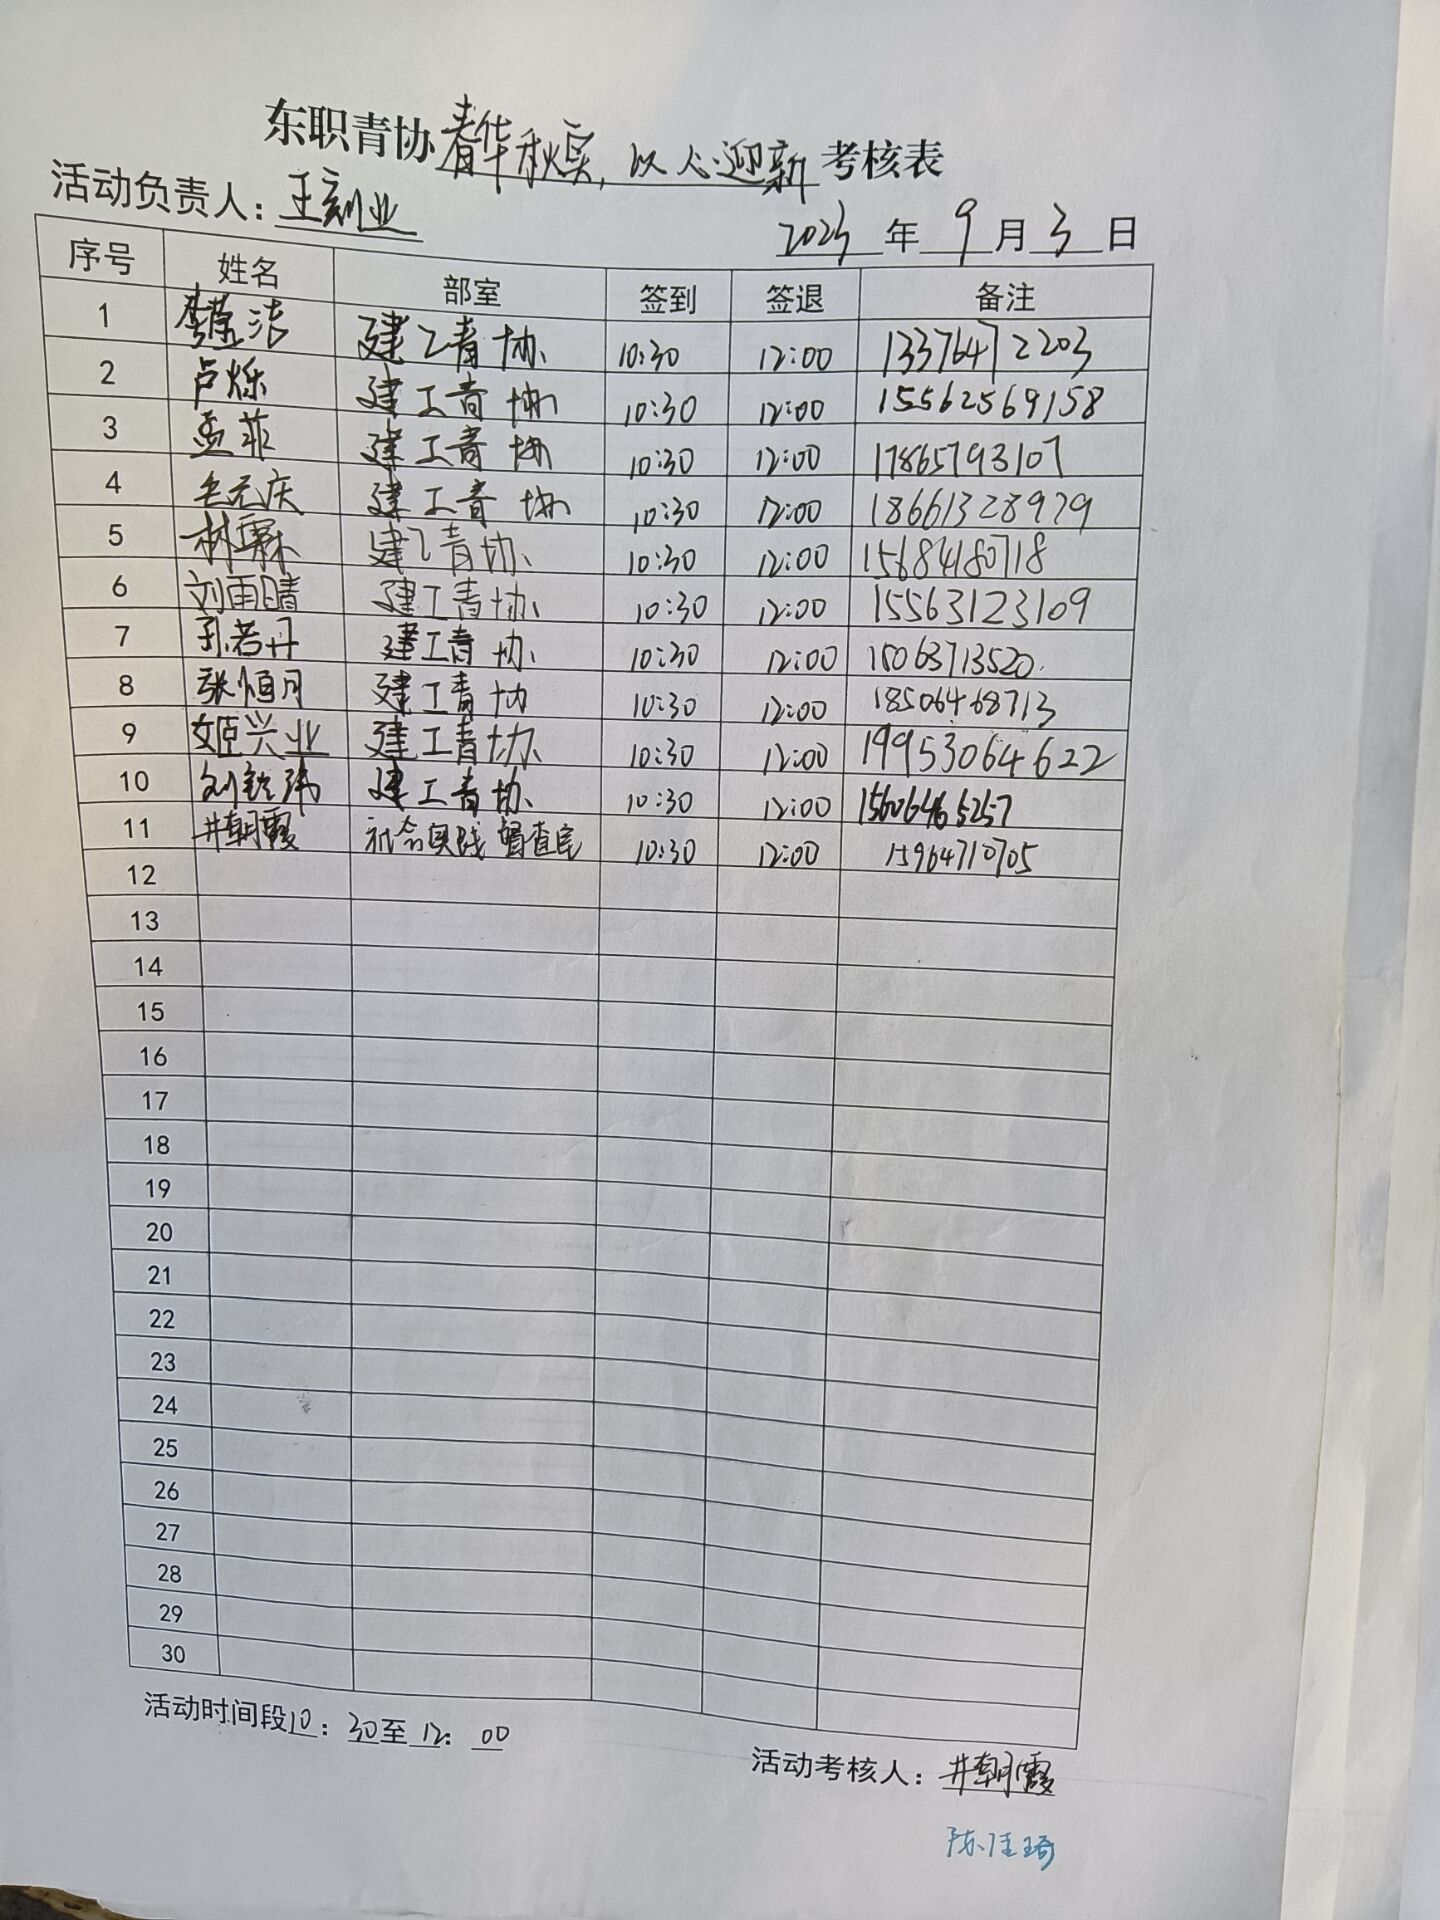 东职青协春华秋实，以心迎新考核表
活动负责人：王刻业
2023年9月3日
序号 姓名 部室 签到 签退 备注
1 李荣洁 建工青协 10:30 12:00 13376472203
2 卢烁 建工青协 10:30 12:00 15562569158
3 孟菲 建工青协 10:30 12:00 17865793107
4 元庆 建工青协 10:30 12:00 18661328979
5 林霖 建工青协 10:30 12:00 15684180718
6 刘雨晴 建工青协 10:30 12:00 15563123109
7 孙若丹 建工青协 10:30 12:00 15063713520
8 张恒月 建工青协 10:30 12:00 18506468713
9 姬兴业 建工青协 10:30 12:00 19953064622
10 刘钦玮 建工青协 10:30 12:00 15606465257
11 井朝霞 社会实践督查室 10:30 12:00 15964710705
12
13
14
15
16
17
18
19
20
21
22
23
24
25
26
27
28
29
30
活动时间段10：30至12：00
活动考核人：井朝霞
陈佳琦